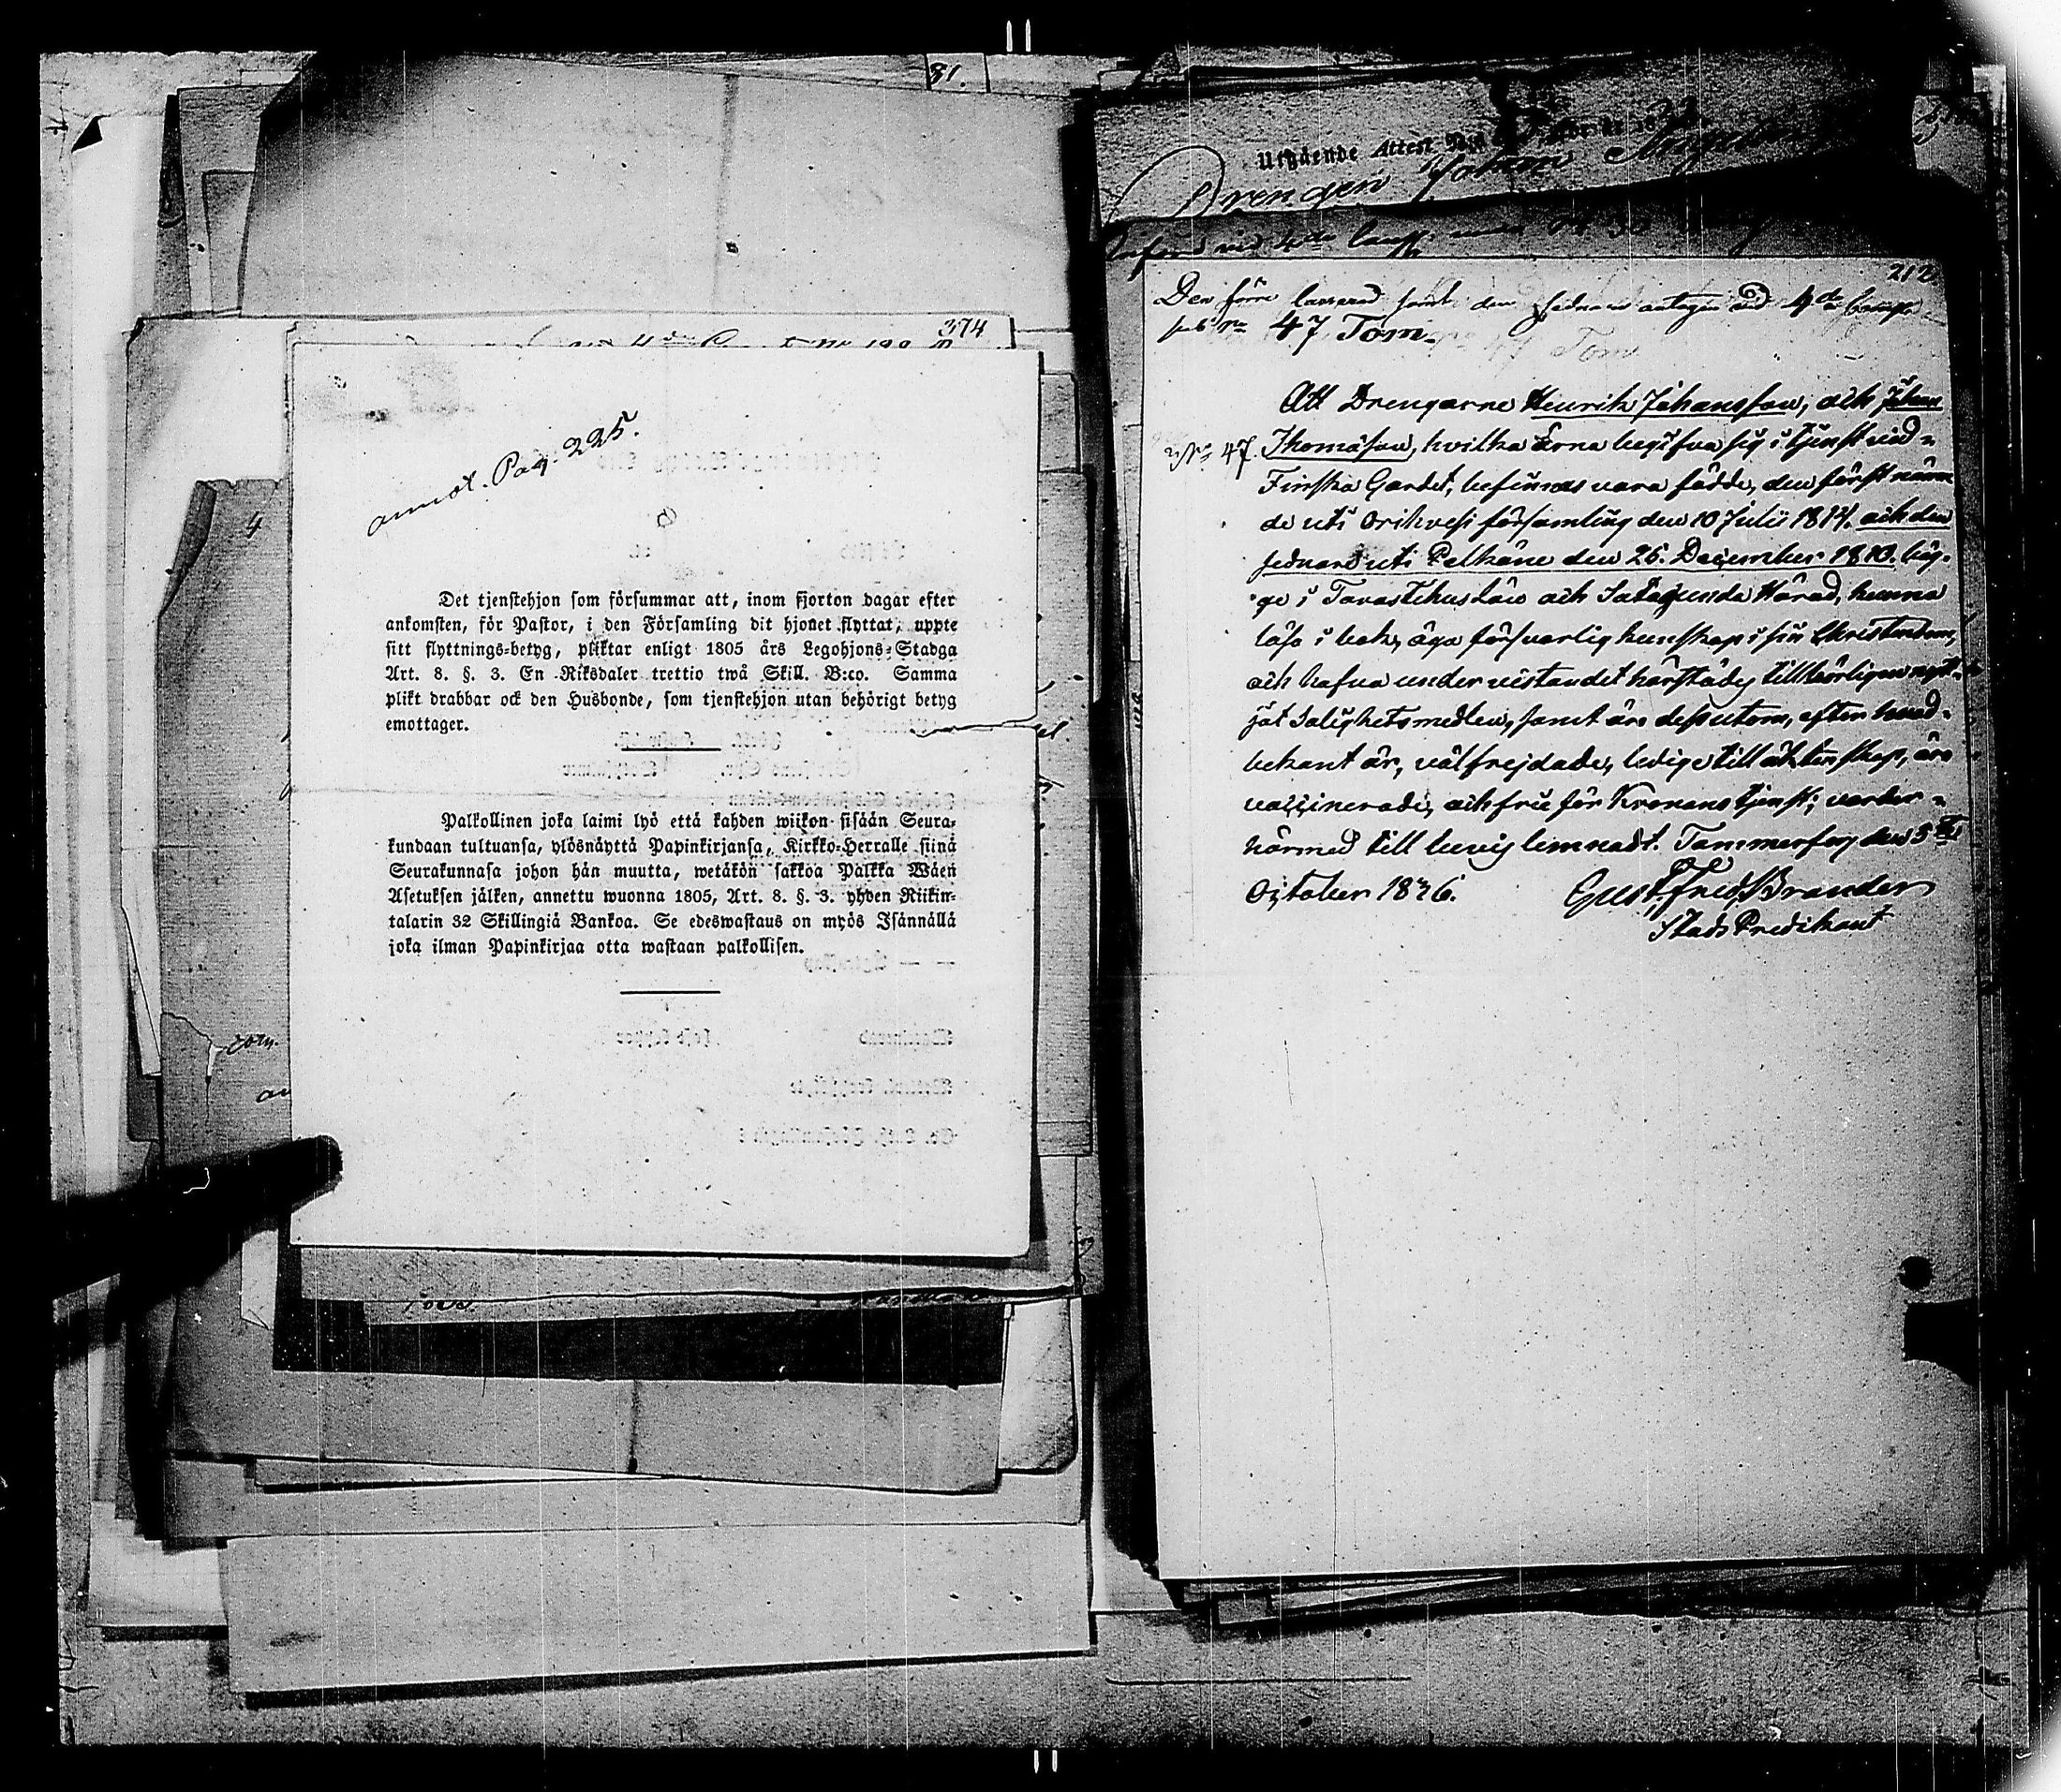 81.
374
annot. Pag. 225.
Det tjenstehjon som försummar att, inom fjorton dagar efter
ankomsten, för Pastor, i den Församling dit hjonet flyttat, uppte
sitt flyttnings-betyg, pliktar enligt 1805 års Legohjons-Stadga
Art. 8. §. 3. En Riksdaler trettio twå Skill. B:co. Samma
plikt drabbar ock den Husbonde, som tjenstehjon utan behörigt betyg
emottager.
Palkollinen joka laimi lyö että kahden wiikon sisään Seura-
kundaan tultuansa, ylösnäyttä Papinkirjansa, Kirkko-Herralle siinä
Seurakunnasa johon hän muutta, wetäkön sakkoa Palkka Wäen
Asetuksen jälken, annettu wuonna 1805, Art. 8. §. 3. yhden Riikin-
talarin 32 Skillingiä Bankoa. Se edeswastaus on myös Isännällä
joka ilman Papinkirjaa otta wastaan palkollisen.
Utgående Attest
Drengen Johan
212
Den förre casserad samt den sednare antagen vid 4de Comp.
sub No 47 Tom.
Att Drengarne Henrik Johansson, och Johan
No 47. Thomasson, hvilka ärna begifva sig i tjenst vid
Finska Gardet, befinnas vara födde, den förstnämn
de uti Orihvesi församling den 10 Julii 1814. och den
sednare uti Pelkäne den 26. December 1810. båg-
ge i Tavastehus Län och Satagunda Härad, kunna
läsa i bok, äga försvarlig kunskap i sin Christendom,
och hafva under vistandet härstädes tillbörligen nytt-
jat Salighetsmedlen, samt äro dessutom, efter hvad
bekant är, välfrejdade, ledige till äktenskap, äro
vaccinerade, och frie för Kronans tjenst; varder
härmed till bevis lemnadt. Tammerfors den 5te
October 1836. Gust. Fred. Brander
Stads Predikant